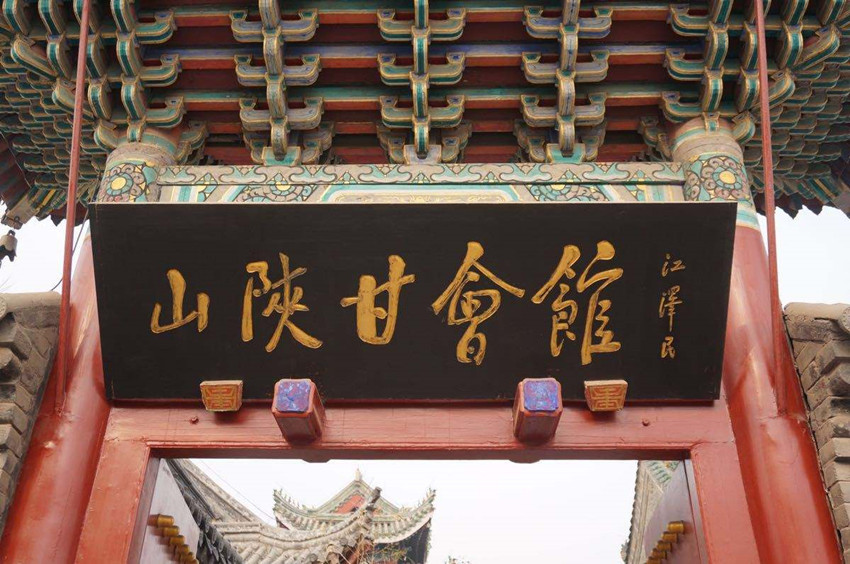 山陝甘會館
江澤民